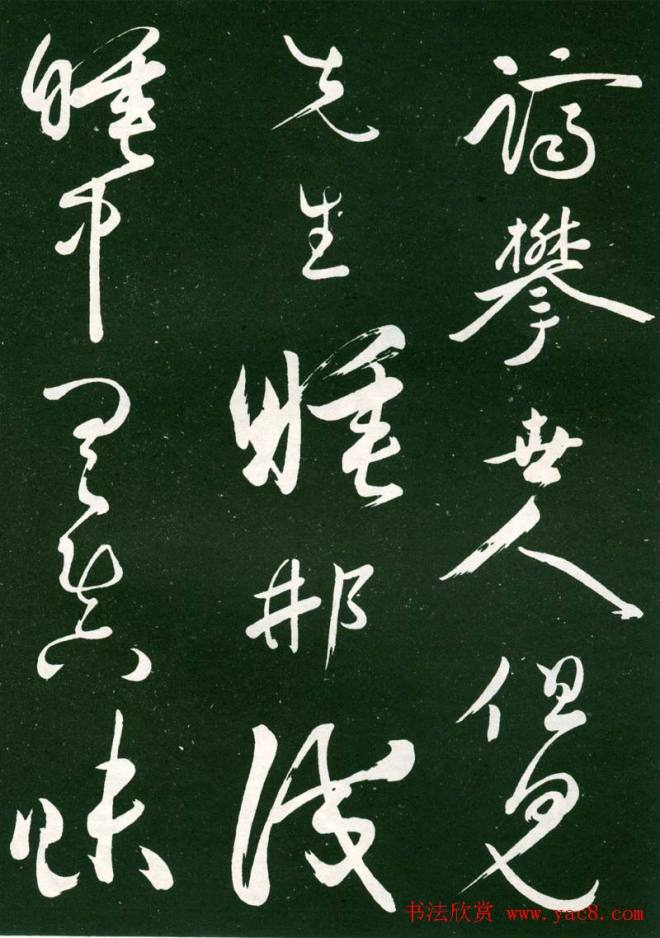 攀世人但見
先生睡那識
睡中具真味
书法欣赏 www.yac8.com